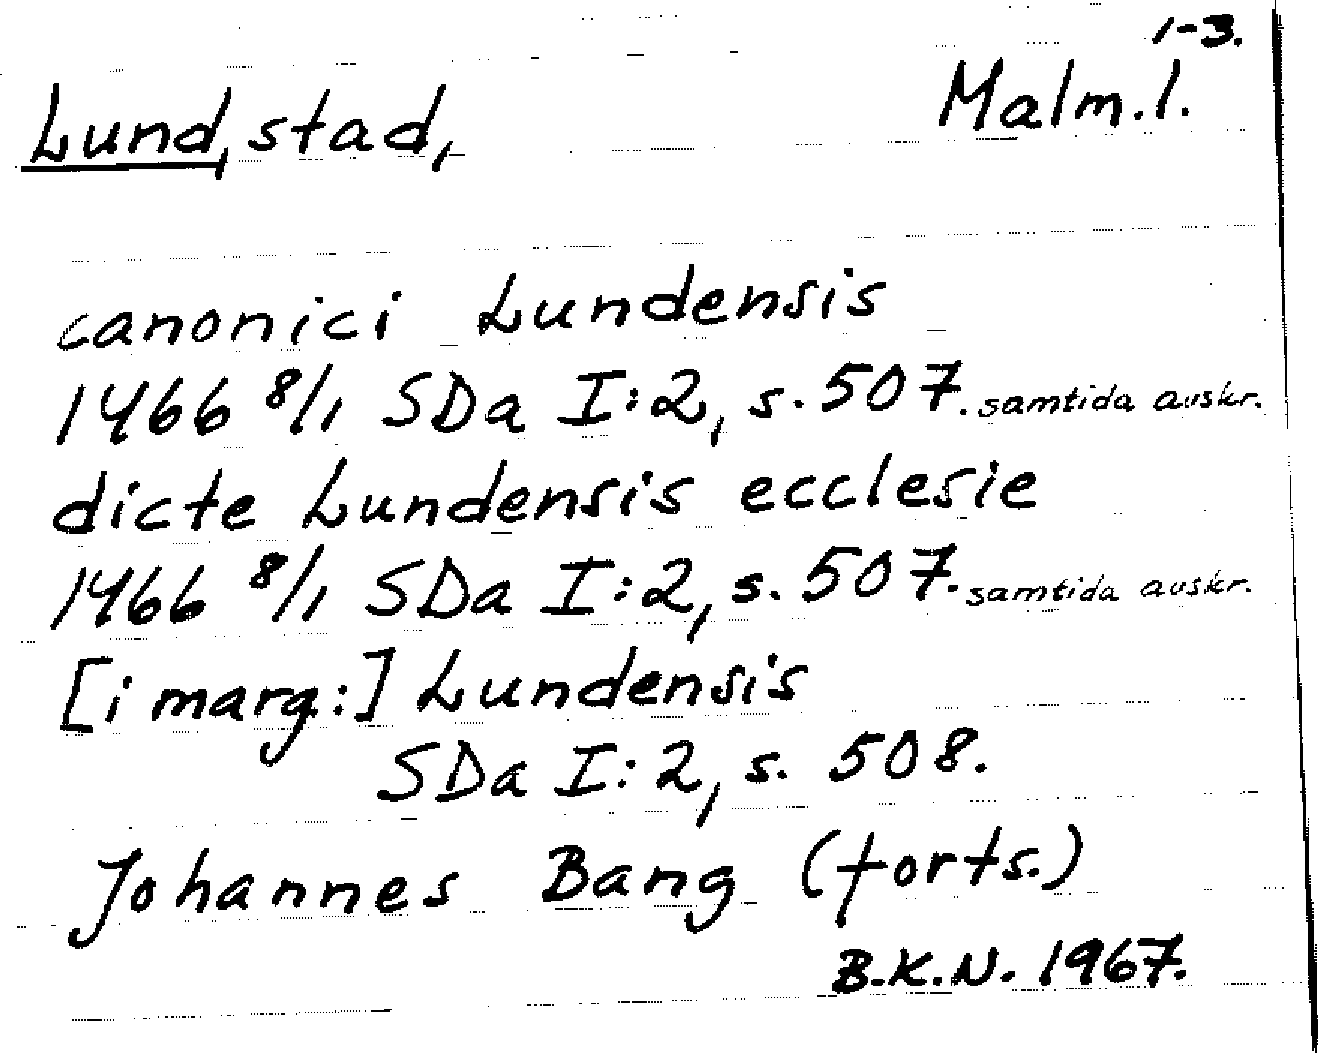 1-3.
Lund, stad, Malm.l.
canonici Lundensis
1466 8/1 SDa I:2, s. 507. samtida avskr.
dicte Lundensis ecclesie
1466 8/1 SDa I:2, s. 507. samtida avskr.
[i marg:] Lundensis
SDa I:2, s. 508.
Johannes Bang (forts.)
B.K.N. 1967.